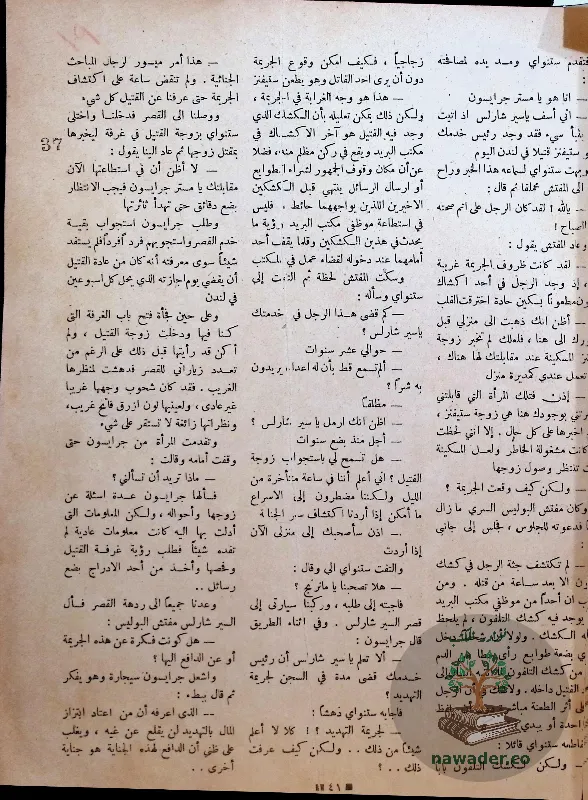 فتقدم ستنواي ومد يده لمصافحته
:
— انا هو يا مستر جرايسون
— اني آسف يا سير شارلس اذ اتيت
بنبأ سيء فقد وجد رئيس خدمك
ستيفنز قتيلا في لندن اليوم
وبهت ستنواي لسماعه هذا الخبر وراح
الى المفتش محملقا ثم قال :
— يالله ! لقد كان الرجل على اتم صحته
الصباح !
وعاد المفتش يقول :
— لقد كانت ظروف الجريمة غريبة
، إذ وجد الرجل في أحد اكشاك
مطعونا بسكين حادة اخترقت القلب
— أظن انك ذهبت الى منزلي قبل
الى هنا ، فلعلك لم تخبر زوجة
المسكينة عند مقابلتك لها هناك ،
تعمل عندي كمديرة منزل
— إذن فتلك المرأة التي قابلتني
بوجودك هنا هي زوجة ستيفنز ،
اخبرها على كل حال . إلا أنني لحظت
كانت مشغولة الخاطر ولعل المسكينة
تنتظر وصول زوجها
— ولكن كيف وقعت الجريمة ؟
وكان مفتش البوليس السري ما زال
فدعوته للجلوس ، فجلس إلى جانبي
:
— لم تكتشف جثة الرجل في كشك
الا بعد ساعة من قتله . ومن
ان أحدا من موظفي مكتب البريد
يوجد فيه كشك التلفون ، لم يلحظ
الكشك . ولولا
بضعة طوابع رأى الدم
من كشك التلفون إلى
القتيل داخله . الرجل
على أثر الطعنة
واحدة أو يبدي
فقاطعه ستنواي قائلا :
— ولكن لكشك التلفون بابا
زجاجيا ، فكيف امكن وقوع الجريمة
دون أن يرى احد القاتل وهو يطعن ستيفنز
— هذا هو وجه الغرابة في الجريمة ،
ولكن ذلك يمكن تعليله بأن الكشك الذي
وجد فيه القتيل هو آخر الاكشاك في
مكتب البريد ويقع في ركن مظلم منه ، فضلا
عن أن مكان وقوف الجمهور لشراء الطوابع
أو ارسال الرسائل ينتهي قبل الكشكين
الاخيرين اللذين يواجههما حائط . فليس
في استطاعة موظفي مكتب البريد رؤية ما
يحدث في هذين الكشكين وقلما يقف أحد
أمامهما عند دخوله لقضاء عمل في المكتب
وسكت المفتش لحظة ثم التفت إلى
ستنواي وسأله :
— كم قضى هذا الرجل في خدمتك
يا سير شارلس ؟
— حوالي عشر سنوات
— ألم تسمع قط بأن له اعداء يريدون
به شراً ؟
— مطلقاً
— اظن انك ارمل يا سير شارلس ؟
— أجل منذ بضع سنوات
— هل تسمح لي باستجواب زوجة
القتيل ؟ اني أعلم أننا في ساعة متأخرة من
الليل ولكننا مضطرون إلى الاسراع
ما أمكن إذا أردنا اكتشاف سر الجناية
— اذن سأصحبك إلى منزلي الآن
إذا أردت
والتفت ستنواي الي وقال :
— هلا تصحبنا يا ماتريج ؟
فاجبته إلى طلبه ، وركبنا سيارتي إلى
قصر السير شارلس . وفي اثناء الطريق
قال جرايسون :
— ألا تعلم يا سير شارلس أن رئيس
خدمك قضى مدة في السجن لجريمة
التهديد ؟
فاجابه ستنواي ذهشاً :
— لجريمة التهديد ؟ ! كلا لا أعلم
شيئاً من ذلك .. ولكن كيف عرفت
ذلك .. ؟
— هذا أمر ميسور لرجال المباحث
الجنائية . ولم تنقض ساعة على اكتشاف
الجريمة حتى عرفنا عن القتيل كل شيء
ووصلنا الى القصر فدخلنا واختلى
ستنواي بزوجة القتيل في غرفة ليخبرها
بمقتل زوجها ثم عاد الينا يقول :
— لا أظن أن في استطاعتها الآن
مقابلتك يا مستر جرايسون فيجب الانتظار
بضع دقائق حتى تهدأ ثائرتها
وطلب جرايسون استجواب بقية
خدم القصر واستجوبهم فرد أفرد أفلم يستفد
شيئاً سوى معرفته أنه كان من عادة القتيل
أن يقضي يوم اجازته الذي يحل كل اسبوعين
في لندن
وعلى حين فجأة فتح باب الغرفة التي
كنا فيها ودخلت زوجة القتيل ، ولم
أكن قد رأيتها قبل ذلك على الرغم من
تعدد زياراتي للقصر فدهشت لمنظرها
الغريب . فقد كان شحوب وجهها غريبا
غير عادي ، ولعينيها لون ازرق فاتح غريب ،
ونظراتها زائغة لا تستقر على شيء
وتقدمت المرأة من جرايسون حتى
وقفت أمامه وقالت :
— ماذا تريد أن تسألني ؟
فسألها جرايسون عدة اسئلة عن
زوجها وأحواله ، ولكن المعلومات التي
أدلت بها اليه كانت معلومات عادية لم
تفده شيئاً فطلب رؤية غرفة القتيل
وفحصها وأخذ من أحد الادراج بضع
رسائل ..
وعدنا جميعاً الى ردهة القصر فسأل
السير شارلس مفتش البوليس :
— هل كونت فكرة عن هذه الجريمة
أو عن الدافع اليها ؟
واشعل جرايسون سيجارة وهو يفكر
ثم قال ببطء :
— الذى اعرفه أن من اعتاد ابتزاز
المال بالتهديد لن يقلع عن غيه ، ويغلب
على ظني أن الدافع لهذه الجناية هو جناية
أخرى ..
37
٤١
nawader.co